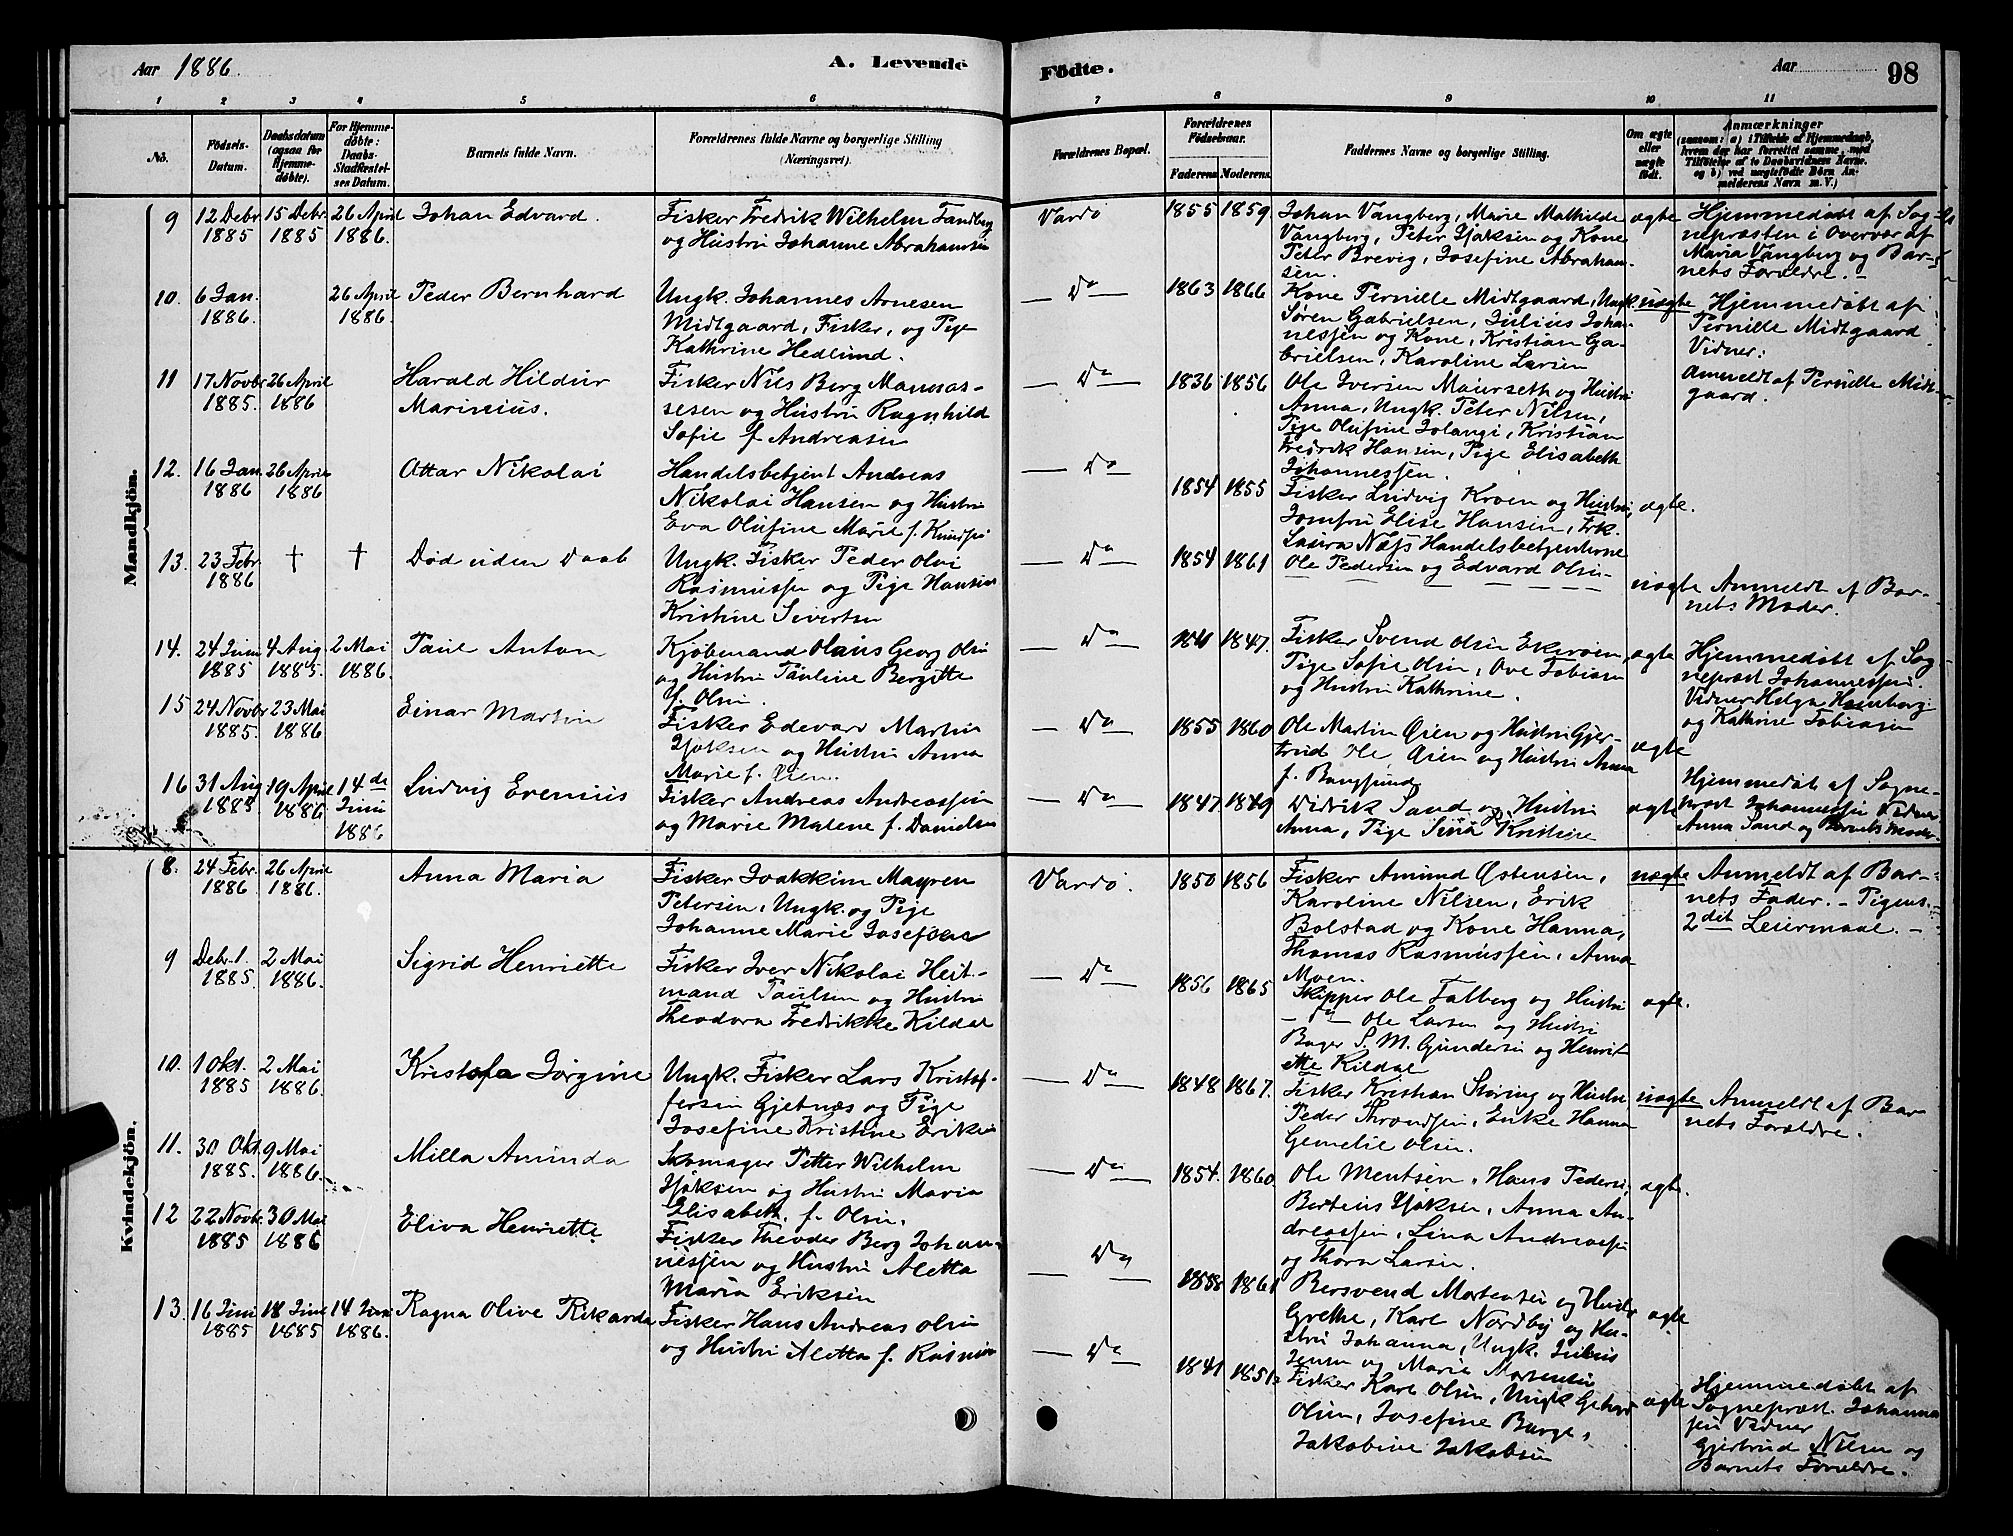 Aar 1886.
A. Levende
1 2 3 4 5 6
No.
Födsels-Datum.
Daabsdatum (ogsaa for Hjemmedöbte).
For Hjemmedöbte: Daabs-Stadfæstelses Datum.
Barnets fulde Navn.
Forældrenes fulde Navne og borgerlige Stilling
(Næringsvei).
Mandkjön.
9 12 Debr 1885 15 Debr 1885 26 April 1886. Johan Edvard.
Fisker Fredrik Wilhelm Tandberg
og Hustru Johanne Abrahamsen
10. 6 Jan. 1886. 26 April 1886. Peder Bernhard
Ungk. Johannes Arnesen
Midtgaard, Fisker, og Pige
Kathrine Hedlund.
11 17 Novbr 1885. 26 April 1886 Harald Hildur
Marinius.
Fisker Nils Berg Manas-
sesen og Hustru Ragnhild
Sofie f. Andreasen
12. 16 Jan 1886 26 April 1886 Ottar Nikolai
Handelsbetjent Andreas
Nikolai Hansen og Hustru
Eva Olufine Marie f. Knudsen
13. 23 Febr. 1886 † † Död uden Daab
Ungk. Fisker Peder Olai
Rasmussen og Pige Hansine
Kristine Sivertsen
14. 24 Juni 1885 4 Aug 1885. 2 Mai 1886. Paul Anton
Kjöbmand Olaus Georg Olsen
og Hustru Pauline Bergitte
f. Olsen.
15 24 Novbr 1885. 23 Mai 1886 Einar Martin
Fisker Edevart Martin
Isaksen og Hustru Anna
Marie f. Öien.
16 31 Aug 1885 19 April 1886 14de Juni 1886 Ludvig Erenius
Fisker Andreas Andreassen
og Marie Malene f. Danielsen
Kvindekjön.
8. 24 Febr. 1886 26 April 1886. Anna Maria
Fisker Joakkim Mayren
Petersen, Ungk. og Pige
Johanne Marie Josefsen
9 Debr. 1. 1885. 2 Mai 1886. Sigrid Henriette
Fisker Iver Nikolai Heit-
mand Paulsen og Hustru
Theodora Fredrikke Kildal
10. 1 Okt. 1885 2 Mai 1886. Kristofa Jörgine
Ungk. Fisker Lars Kristof-
fersen Gjetnæs og Pige
Josefine Kristine Eriksen
11. 30 Okt. 1885. 9 Mai 1886. Milla Aminda
Skomager Petter Wilhelm
Isaksen og Hustru Maria
Elisabeth f. Olsen.
12 22 Novbr. 1885 30 Mai 1886 Eliva Henriette
Fisker Theodor Berg Johan-
nessen og Hustru Aletta
Maria Eriksen
13. 16 Juni 1885 18 Juni 1885 14 Juni 1886. Ragna Olive Rikarda
Fisker Hans Andreas Olsen
og Hustru Aletta f. Rasmussen
Födte.
Aar
98
7 8 9 10 11
Forældrenes Bopæl.
Forældrenes Födselsaar.
Faderens. Moderens.
Faddernes Navne og borgerlige Stilling.
Om ægte eller uægte födt.
Anmærkninger
(saasom: a) i Tilfælde af Hjemmedaab,
hvem der har forrettet samme, med
Tilföielse af to Daabsvidners Navne.
og b) ved uægtefödte Börn An-
melderens Navn m. V.)
Vardö 1855 1859.
Johan Vangberg, Marie Mathilde
Vangberg, Peter Isaksen og Kone
Peter Brevig, Josefine Abraham-
sen.
ægte
Hjemmedöbt af Sog-
nepræsten i Overvær af
Maria Vangberg og Bar-
nets Forældre. -
Do 1863 1866
Kone Pernille Midtgaard, Ungk.
Sören Gabrielsen, Julius Johan-
nessen og Kone, Kristian Ga-
brielsen, Karoline Larsen
uægte
Hjemmedöbt af
Pernille Midtgaard
Vidner:
Anmeldt af Pernille Midt-
gaard.
Do 1836 1856
Ole Iversen Maierseth og Hustru
Anna, Ungk. Peter Nilsen,
Pige Olufine Jolangi, Kristian
Fredrik Hansen, Pige Elisabeth
Johannessen.
Do 1854 1855
Fisker Ludvig Kroen og Hustru,
Jomfru Elise Hansen, Frk.
Laura Næss Handelsbetjenterne
Ole Pedersen og Edvard Olsen
ægte.
Do 1854 1861
uægte
Anmeldt af Bar-
nets Moder.
Do 1841 1847.
Fisker Svend Olsen Ekeröien,
Pige Sofie Olsen, Ove Tobiasen
og Hustru Kathrine.
ægte
Hjemmedöbt af Sog-
nepræst Johannessen.
Vidner Helga Hamberg
og Kathrine Tobiasen
Do 1855 1860
Ole Martin Öien og Hustru Gjer-
trud Ole Öien og Hustru Anna
f. Bangsund
ægte
Do 1847 1849
Didrik Sand og Hustru
Anna, Pige Sina Kristine
ægte
Hjemmedöbt af Sogne-
præst Johannessen Vidner
Anna Sand og Barnets Moder.
Vardö. 1850 1856
Fisker Amund Östensen,
Karoline Nilsen, Erik
Bolstad og Kone Hanna,
Thomas Rasmussen, Anna
Moen.
uægte
Anmeldt af Bar-
nets Fader. - Pigens
2det Leiermaal. -
Do 1856 1865
Skipper Ole Falberg og Hustru
- Do - Ole Larsen og Hustru
Bager S. M. Gundersen og Henri-
ette Kildal
ægte.
Do 1848 1867.
Fisker Kristian Störing og Hustru,
Peder Throndsen, Enke Hanna
Gemelie Olsen.
uægte
Anmeldt af Bar-
nets Forældre.
Do 1854. 1860
Ole Mentsen, Hans Pedersen,
Berteus Isaksen, Anna An-
dreassen, Lina Andreassen
og Thora Larsen.
ægte.
Do 1858 1861
Bersvend Mortensen og Hustru
Grethe, Karl Nordby og Hu-
stru Johanna, Ungk. Julius
Jensen og Marie Mortensen
ægte
Do 1841 1851
Fisker Karl Olsen, Ungk Gerhard
Olsen, Josefine Barge,
Jakobine Jakobsen
ægte
Hjemmedöbt af
Sognepræst. Johannes-
sen Vidner
Gjertrud Nilsen og
Barnets Forældre.